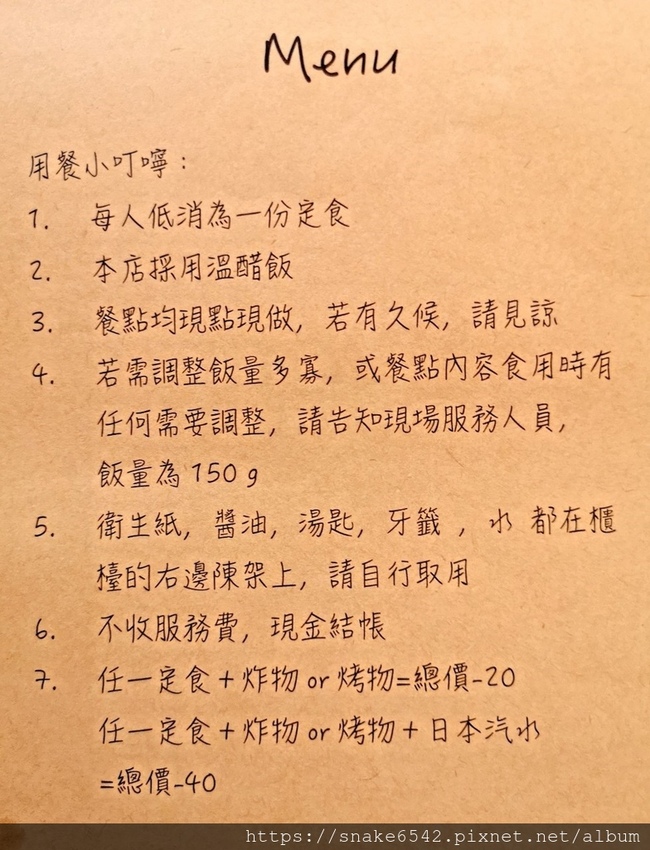 Menu
用餐小叮嚀：
1. 每人低消為一份定食
2. 本店採用溫醋飯
3. 餐點均現點現做, 若有久候, 請見諒
4. 若需調整飯量多寡, 或餐點內容食用時有
任何需要調整, 請告知現場服務人員,
飯量為 150 g
5. 衛生紙, 醬油, 湯匙, 牙籤 , 水 都在櫃
檯的右邊陳架上, 請自行取用
6. 不收服務費, 現金結帳
7. 任一定食 + 炸物 or 烤物=總價-20
任一定食 + 炸物 or 烤物 + 日本汽水
=總價-40
https://snake6542.pixnet.net/album